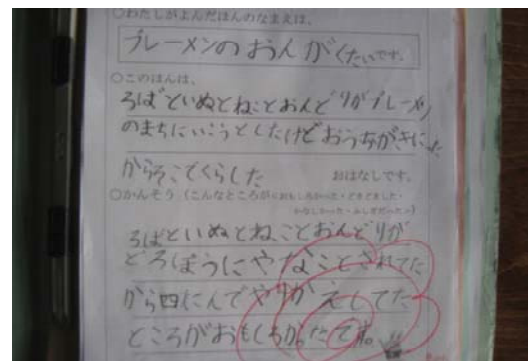 ○わたしがよんだほんのなまえは、
ブレーメンのおんがくたいです。
○このほんは、
ろばといぬとねことおんどりがブレーメン
のまちにいこうとしたけどおうちがきにった
からそこでくらした おはなしです。
○かんそう(こんなところが おもしろかった・どきどきした・
かなしかった・ふしぎだった…)
ろばといぬとねことおんどりが
どろぼうにやなことされてた
から四にんでやりかえしてた
ところがおもしろかったです。